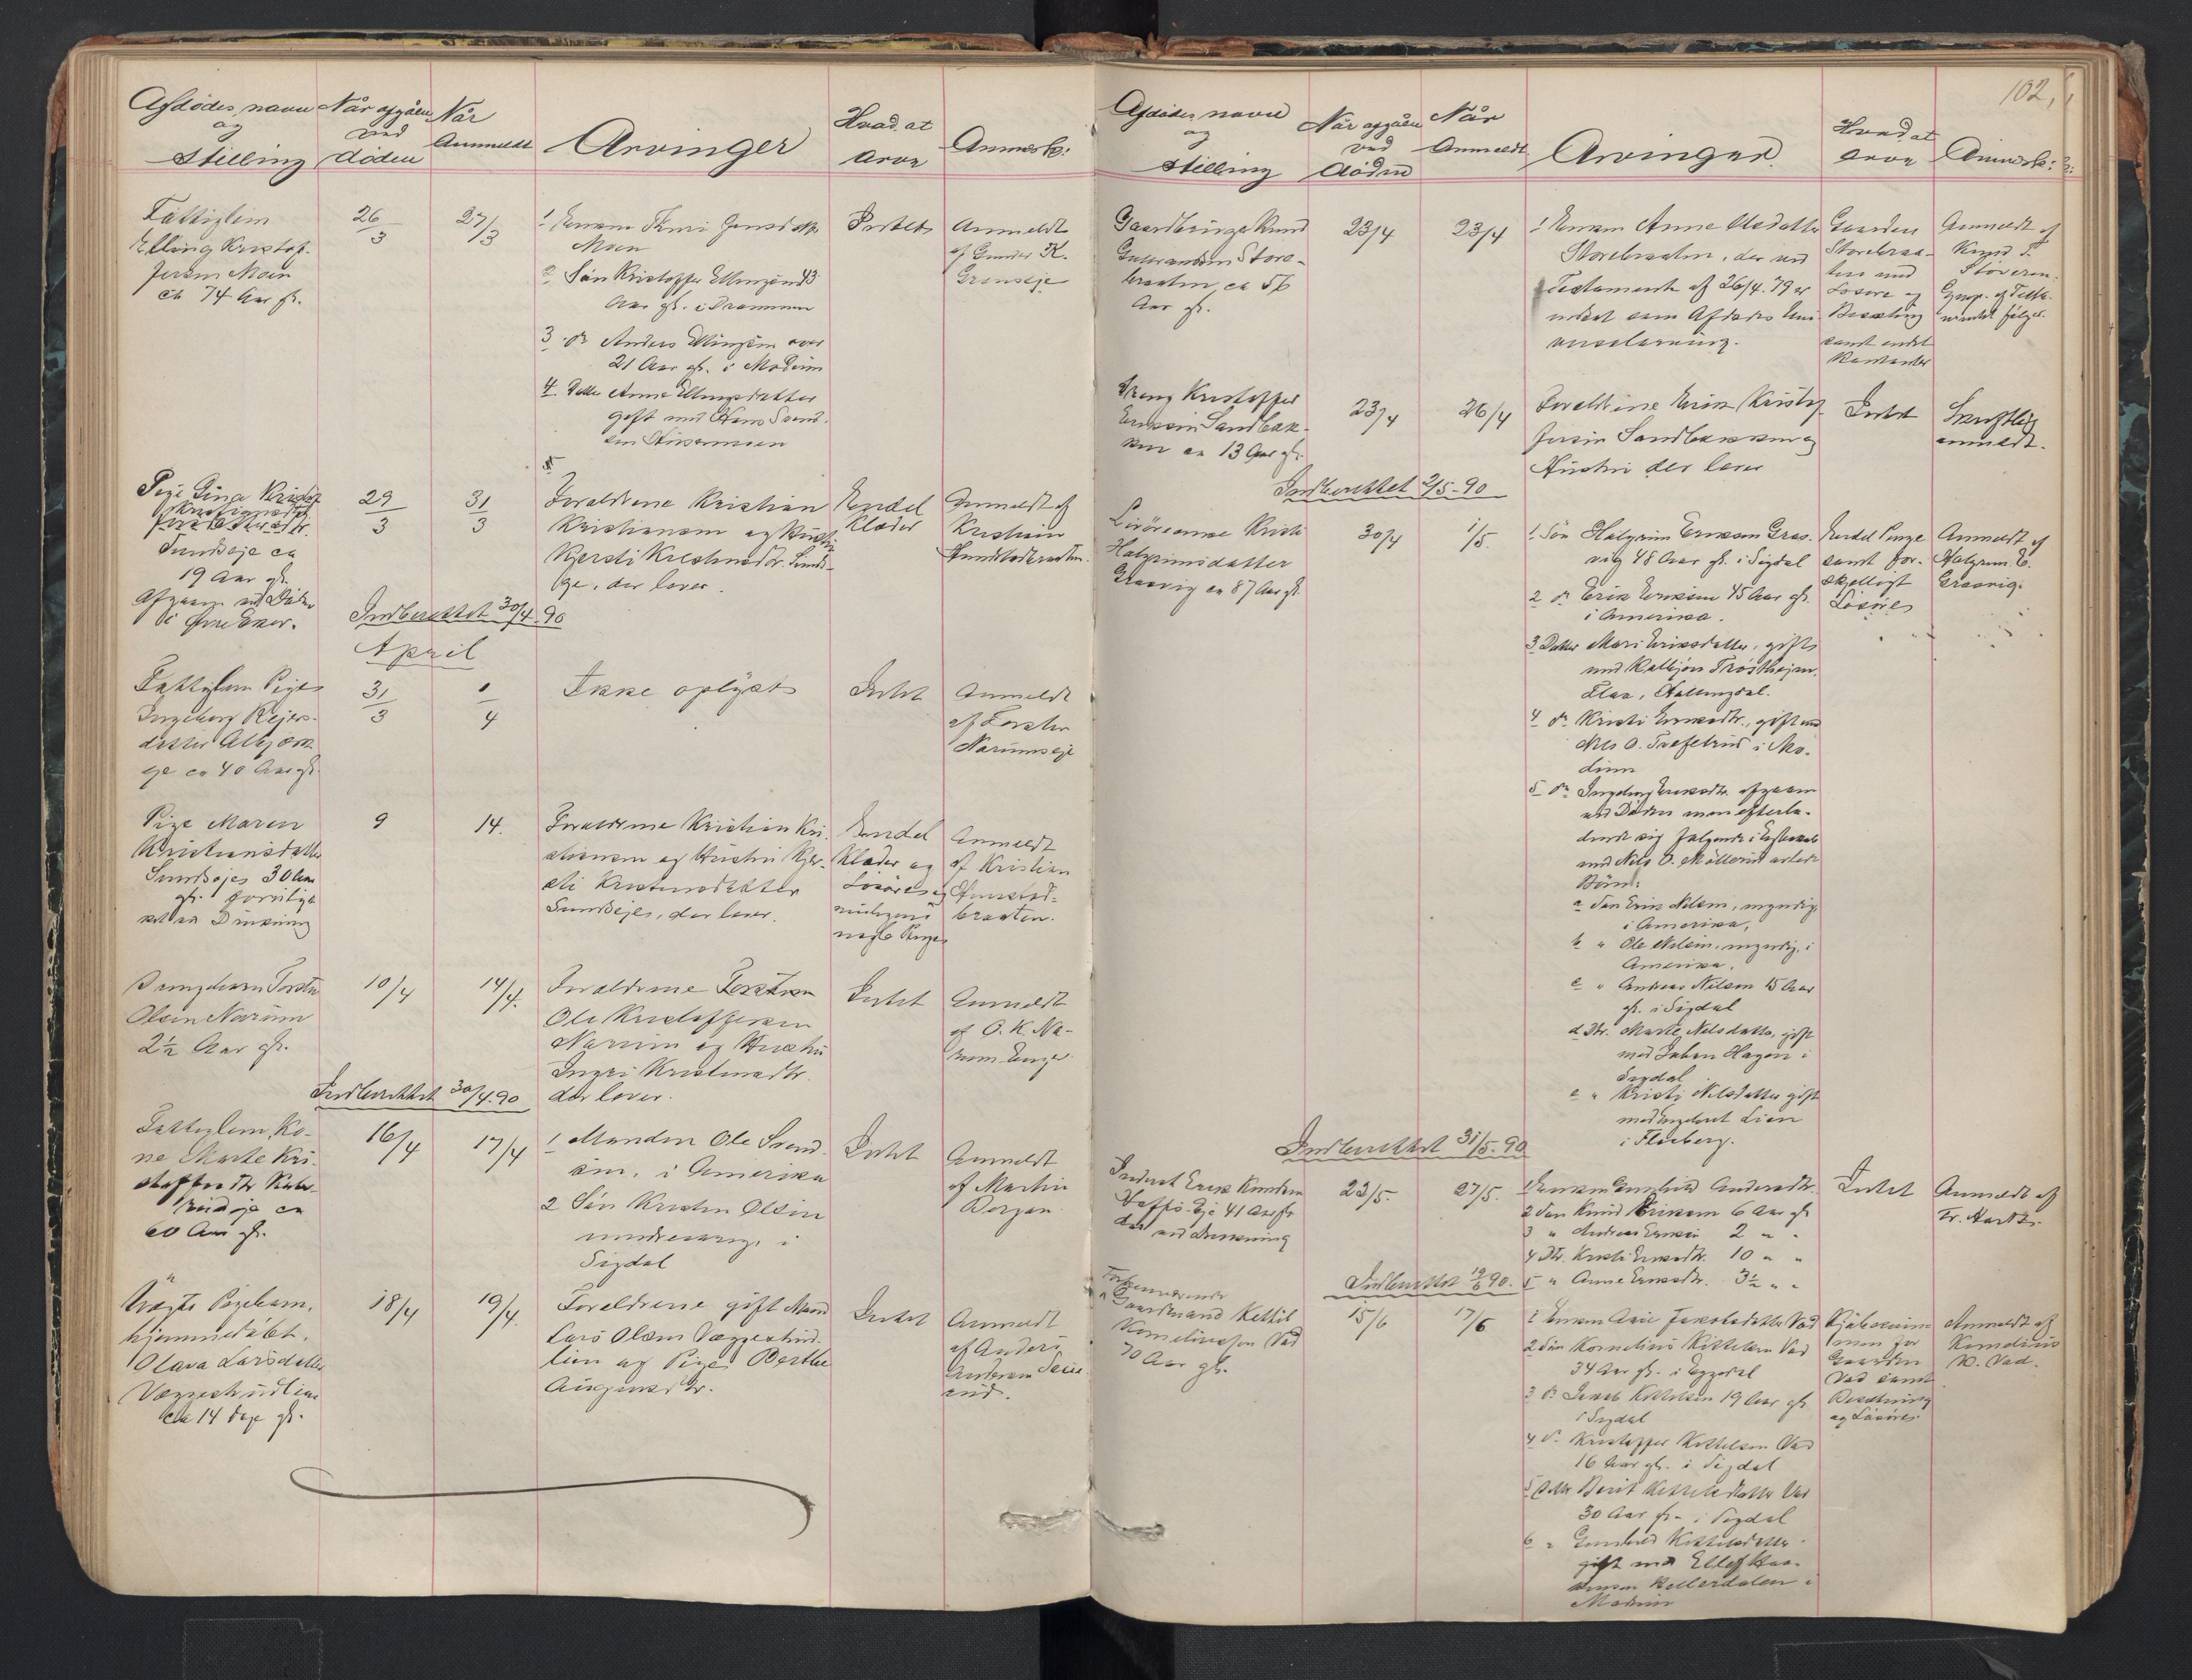 Afdødes navn
og
Stilling
Når afgåen
ved
Døden
Når
Anmeldt
Arvinger
Hvad at
arve
Anmærk:
Fattiglem
Elling Kristof-
fersen Moen
ca 74 Aar gl.
26/3
27/3
1 Enken
Moen
2 Søn Kristoffer Ellingsen 43
Aar gl. i Drammen
3 do Anders Ellingsen over
21 Aar gl. i Modum
4 Datter Anne Ellingsdatter
gift med Hans Svend-
sen
5
Intet
Anmeldt
af Gunder K.
Pige Gina
Kristiansdtr.
Sundseje ca
19 Aar gl.
Afgaaen ved Døden
i Øvre Eker.
29/3
31/3
Forældrene Kristian
Kristiansen og Hustru
Kjersti Kristensdtr. Sunds-
eje, der lever.
Endel
Klæder
Anmeldt af
Kristian
Indberettet 30/4-90
April
Fattiglem Pige
Ingeborg Reiers-
datter
eje ca 40 Aar gl.
31/3
1/4
Ikke oplyst
Intet
Anmeldt
af Torsten
Narumseje
Pige Maren
Kristiansdatter
Sundseje 30 Aar
gl.
ved Drukning
9
14.
Forældrene Kristian Kri-
stiansen og Hustru Kjer-
sti Kristensdatter
Sundseje, der lever.
Endel
Klæder og
Løsøre og
muligens
nogle Penge
Anmeldt
af Kristian
Hunstad-
braaten.
Drengebarn Torsten
Olsen Narum
2½ Aar gl.
10/4
14/4.
Forældrene
Ole Kristoffersen
Narum og Hustru
Ingri Kristensdtr.
der lever.
Intet
Anmeldt
af O. K. Na-
rum Enger
Indberettet 30/4-90
Fattiglem, Ko-
ne Marte Kri-
stoffersdtr
eje ca
60 Aar gl.
16/4
17/4
1 Manden Ole Svend-
sen, i Amerika
2 Søn Kristen Olsen
mindreaarig i
Sigdal
Intet
Anmeldt
af Martin
Bergan
Uægte Pigebarn,
hjemmedøbt,
Olava Larsdatter
Væggesrudlien
ca 14 Dage gl.
18/4
19/4.
Forældrene gift Mand
Lars Olsen Væggesrud-
lien og Pige Berthe
Augensdtr.
Intet
Anmeldt
af Anders
Andersen
rud.
102,
Afdødes navn
og
Stilling
Når afgåen
ved
Døden
Når
Anmeldt
Arvinger
Hvad at
arve
Anmærk:
Gaardbruger Knud
Gulbrandsen Store-
braaten, ca 56
Aar gl.
23/4
23/4
1 Enken Anne Olsdatter
Storebraaten, der ved
Testamente af 26/4. 79 er
indsat som Afdødes Uni-
versalarving.
Gaarden
Storebraa-
ten med
Løsøre og
Besætning
samt endel
Kontanter
Anmeldt af
Knud T.
Støveren.
Gjenp. af Testa-
mentet følger.
Dreng Kristoffer
Eriksen Sandbak-
ken ca 13 Aar gl.
23/4
26/4
Forældrene Erik Kristof-
fersen Sandbakken og
Hustru der lever
Intet
Skriftlig
anmeldt.
Indberettet 2/5-90
Livøreanke Kristi
Halgrimsdatter
Grasvig ca 87 Aar gl.
30/4
1/5.
1 Søn Halgrim Eriksen Gras-
vig 48 Aar gl. i Sigdal
2 do Erik Eriksen 45 Aar gl.
i Amerika.
3 Datter Mari Eriksdatter, gift
med Kolbjørn Trøstheim,
Flaa, Hallingdal.
4 do Kristi Eriksdtr., gift med
Nils O. i Mo-
dum
5 do Ingeborg Eriksdtr. afgaaen
ved Døden men efterla-
dende sig følgende i Egteskab
med Nils O. Møllerud avlede
Børn:
a Søn Erik Nilsen, myndig,
i Amerika,
b " Ole Nilsen, myndig, i
Amerika,
c " Andreas Nilsen 15 Aar
gl. i Sigdal
d Dtr. Marte Nilsdatter, gift
med Johan Hagen i
Sigdal
e " Kristi Nilsdatter gift
med Engebret Lien
i Flesberg.
Endel Penge
samt for-
skjelligt
Løsøre
Anmeldt af
Halgrim E.
Grasvig.
Indberettet 31/5-90
Inderst Erik Knudsen
41 Aar gl.
død ved Drukning
23/5.
27/5.
1 Enken Gunhild Andersdtr.
2 Søn Knud Eriksen 6 Aar gl
3 " Andreas Eriksen 2 " "
4 Dtr. Kristi Eriksdtr. 10 " "
5 " Anne Eriksdtr. 3½ " "
Intet
Anmeldt af
Indberettet 19/6 90.
Forhenværende
Gaardmand Kettil
Korneliussen Vad
70 Aar gl.
15/6
17/6
1 Enken Jakobsdatter Vad
2 Søn Kornelius Kittelsen Vad
34 Aar gl. i Eggedal
3 do Jakob Kittelsen 19 Aar gl
i Sigdal
4 do Kristoffer Kittelsen Vad
16 Aar gl. i Sigdal
5 Datter Berit Kittilsdatter Vad
30 Aar gl. i Sigdal
6 " Gunhild Kittilsdatter
gift med Ellef Haa-
kensen Kollerdalen i
Modum
Kjøbesum-
men for
Gaarden
Vad samt
Besætning
og Løsøre
Anmeldt af
Kornelius
K. Vad.